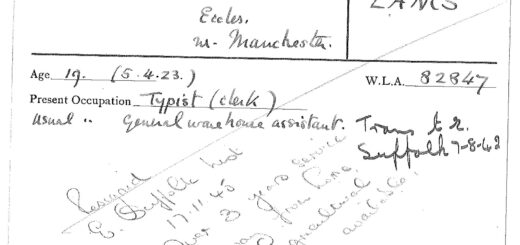 Eccles.
nr. Manchester.
LANCS
Age 19. (5.4.23.)
W.L.A. 82847
Present Occupation Typist (clerk)
usual " General warehouse assistant.
Trans to E.
Suffolk 7-8-42
Resigned
E. Suffolk
17.11.45
Over 3 years service
away from home
agricultural
available